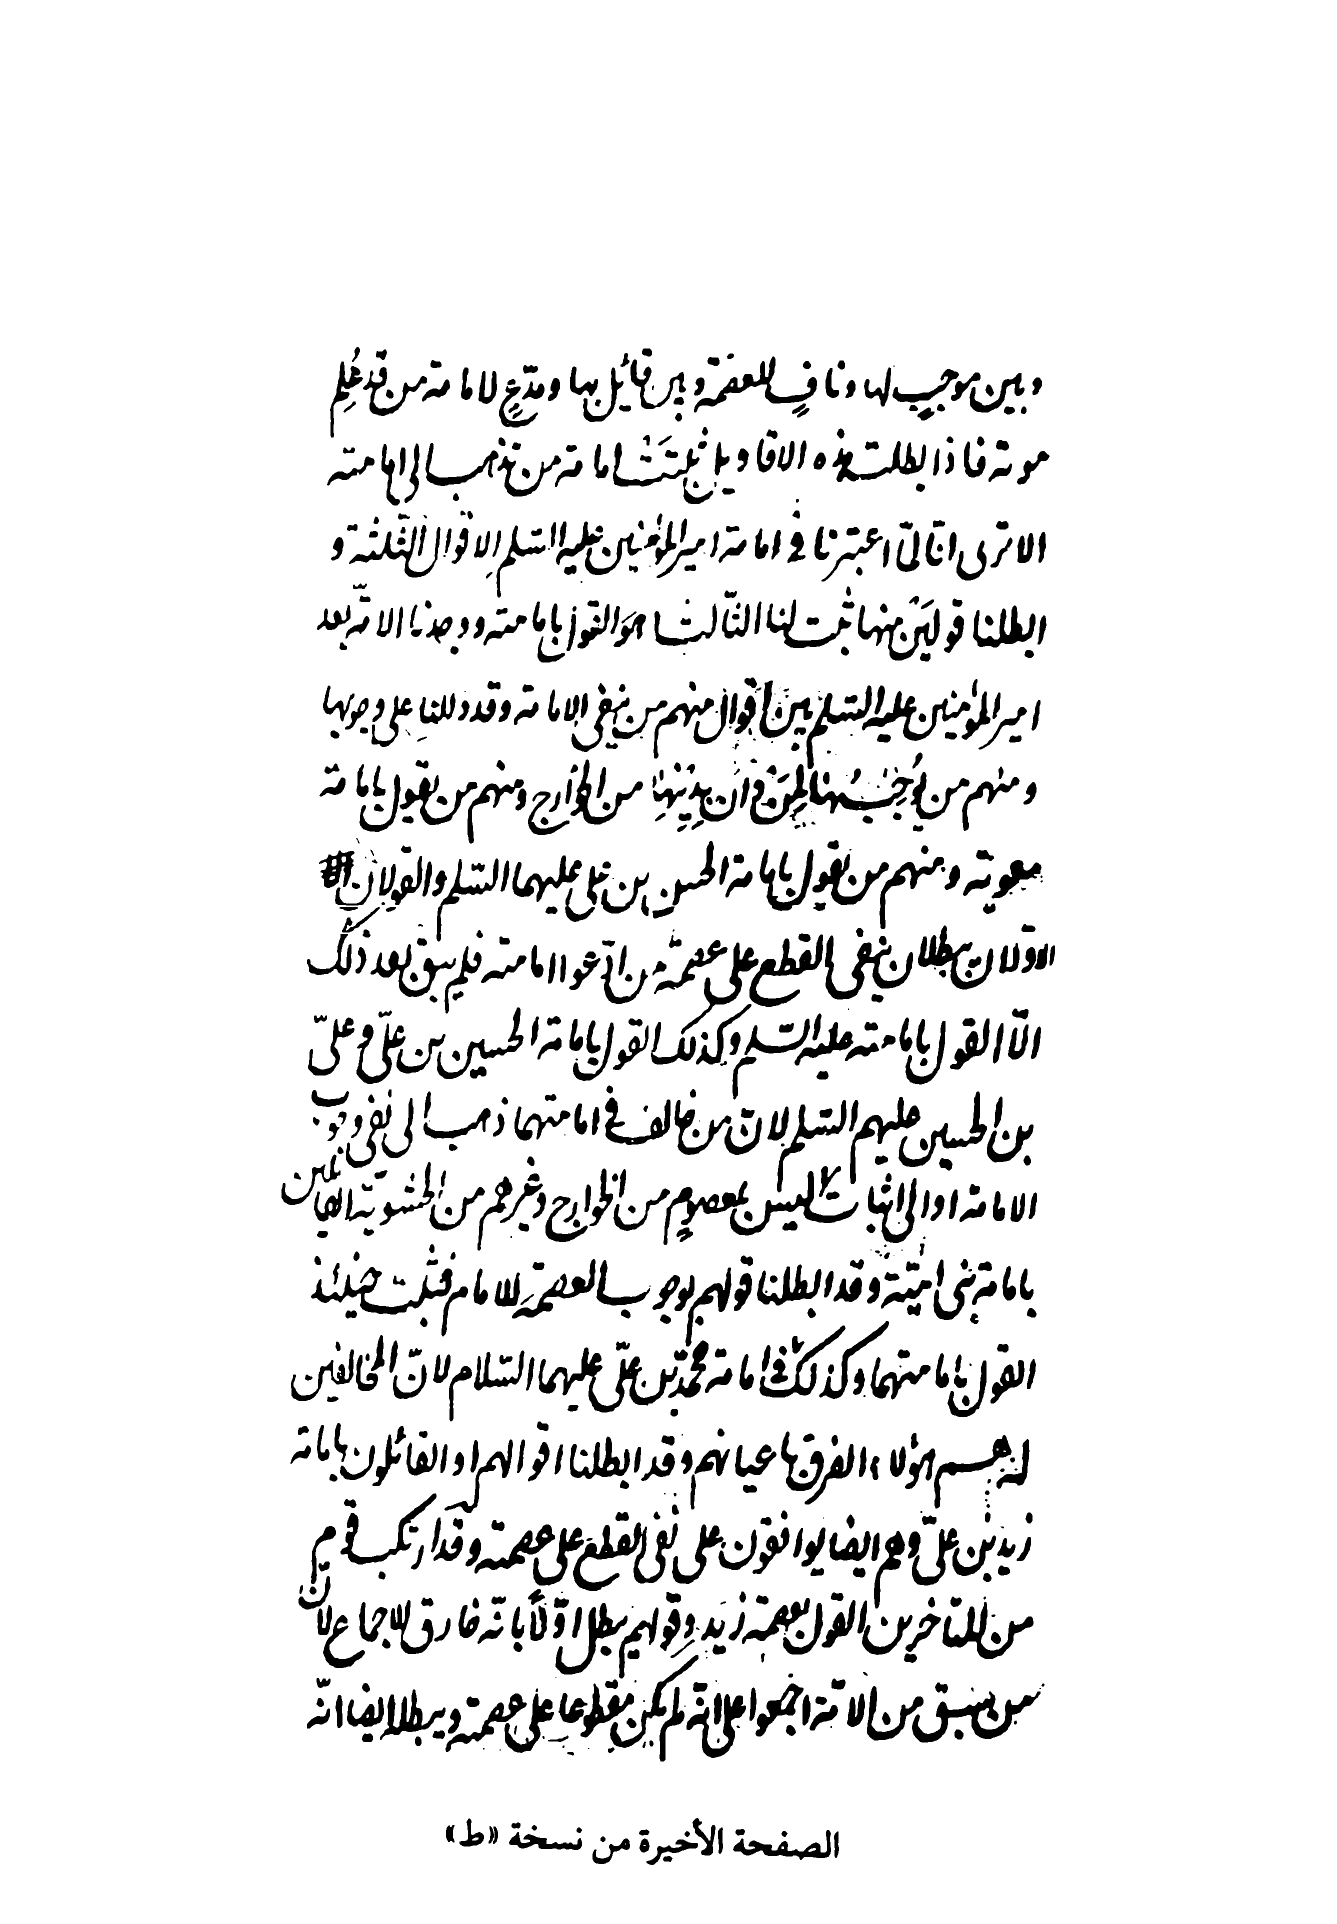 وبين موجبٍ لها ونافٍ للعصمة وبين قائل بها ومدّعٍ لامامة من قد عُلِم
موته فاذا بطلت هذه الاقاويل ثبتت امامة من نذهب الى امامته
الا ترى انّا لمّا اعتبرنا في امامة امير المؤمنين عليه السّلم الاقوال الثّلثة و
ابطلنا قولَيْن منها ثبت لنا الثّالث هوَ القول بامامته ووجدنا الامّة بعد
امير المؤمنين عليه السّلم بين اقوال منهم من ينفى الامامة وقد دللنا على وجوبها
ومنهم من يُوجِبُها لمن يدينها من الخوارج ومنهم من يقول بامامة
معوية ومنهم من يقول بامامة الحسن بن على عليهما السّلم والقولان
الاوّلان يبطلان بنفى القطع على عصمة من ادّعوا امامته فلم يبق بعد ذلك
الّا القول بامامته عليه السّلم وكذلك القول بامامة الحسين بن علىّ وعلىّ
بن الحسين عليهم السّلم لانّ من خالف في امامتهما ذهب الى نفى وجوب
الامامة او الى اثباتها لمن ليس بمعصومٍ من الخوارج وغيرهم من الحشويّة القائلين
بامامة بنى اميّة وقد ابطلنا قولهم بوجوب العصمة للامام فثبت حينئذ
القول بامامتهما وكذلك في امامة محمّد بن علىّ عليهما السّلام لانّ المخالفين
له هم هؤلاء الفرق باعيانهم وقد ابطلنا اقوالهم او القائلون بامامة
زيد بن علىّ وهم ايضا يوافقون على نفى القطع على عصمته وقد ارتكب قوم
من المتاخرين القول بعصمة زيد وقولهم يبطل اوّلاً بانّه خارق للاجماع لانّ
من سبق من الامّة اجمعوا على انّه لم يكن مقطوعا على عصمته ويبطله ايضا انّه
الصفحة الأخيرة من نسخة «ط»